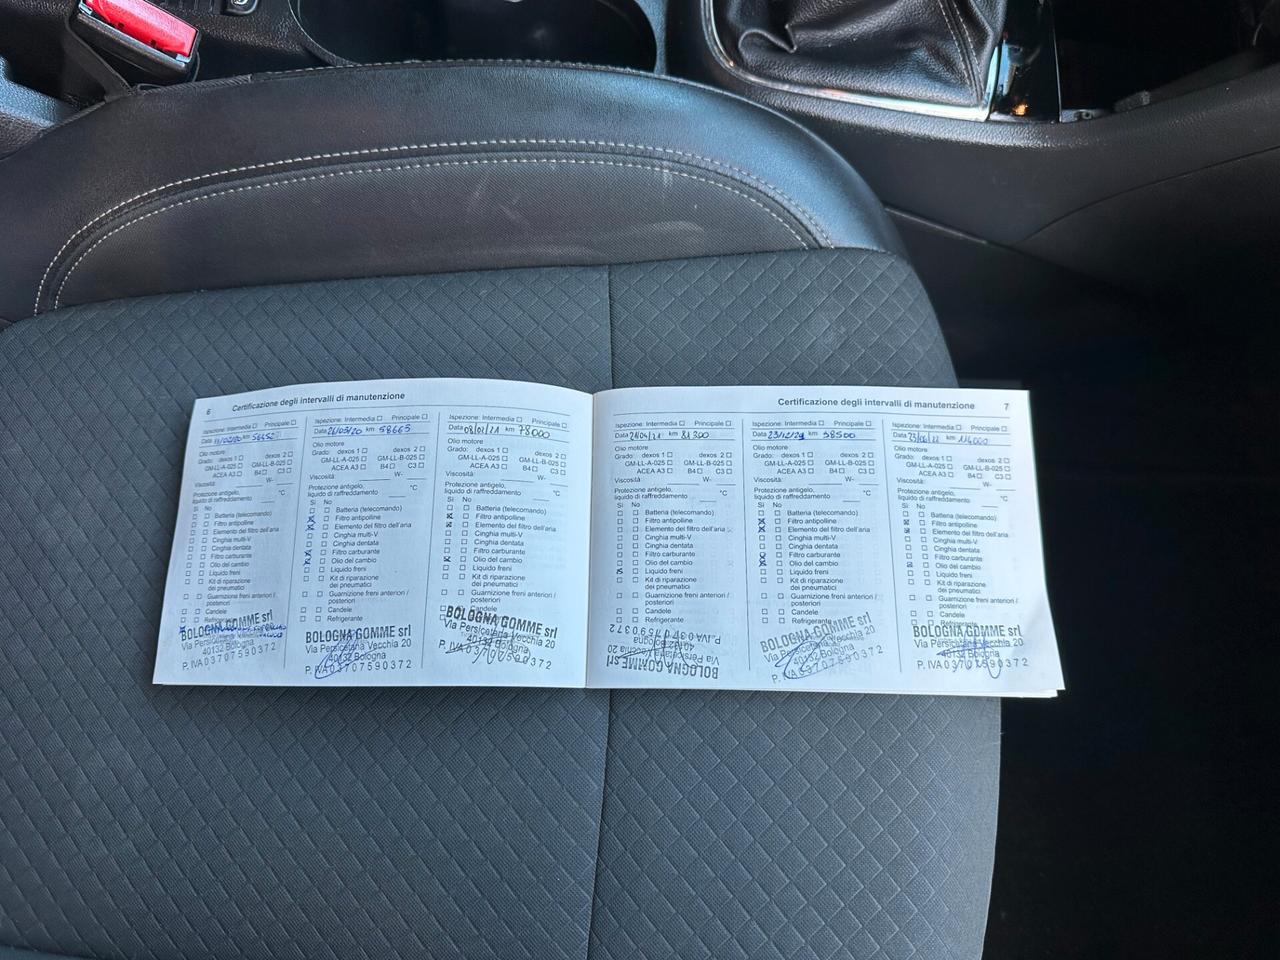 6 Certificazione degli intervalli di manutenzione
Ispezione: Intermedia Principale
Data km
Olio motore
Grado: dexos 1 dexos 2
GM-LL-A-025 GM-LL-B-025
ACEA A3 B4 C3
Viscosità: W-
Protezione antigelo,
liquido di raffreddamento °C
Sì No
Batteria (telecomando)
Filtro antipolline
Elemento del filtro dell'aria
Cinghia multi-V
Cinghia dentata
Filtro carburante
Olio del cambio
Liquido freni
Kit di riparazione
dei pneumatici
Guarnizione freni anteriori /
posteriori
Candele
Refrigerante
BOLOGNA GOMME srl
Via Persicetana Vecchia 20
40132 Bologna
P. IVA 03707590372
Ispezione: Intermedia Principale
Data 26/03/20 km 58665
Olio motore
Grado: dexos 1 dexos 2
GM-LL-A-025 GM-LL-B-025
ACEA A3 B4 C3
Viscosità: W-
Protezione antigelo,
liquido di raffreddamento °C
Sì No
Batteria (telecomando)
Filtro antipolline
Elemento del filtro dell'aria
Cinghia multi-V
Cinghia dentata
Filtro carburante
Olio del cambio
Liquido freni
Kit di riparazione
dei pneumatici
Guarnizione freni anteriori /
posteriori
Candele
Refrigerante
BOLOGNA GOMME srl
Via Persicetana Vecchia 20
40132 Bologna
P. IVA 03707590372
Ispezione: Intermedia Principale
Data 08/01/21 km 78000
Olio motore
Grado: dexos 1 dexos 2
GM-LL-A-025 GM-LL-B-025
ACEA A3 B4 C3
Viscosità: W-
Protezione antigelo,
liquido di raffreddamento °C
Sì No
Batteria (telecomando)
Filtro antipolline
Elemento del filtro dell'aria
Cinghia multi-V
Cinghia dentata
Filtro carburante
Olio del cambio
Liquido freni
Kit di riparazione
dei pneumatici
Guarnizione freni anteriori /
posteriori
Candele
BOLOGNA GOMME srl
Via Persicetana Vecchia 20
40132 Bologna
P. IVA 03707590372
Certificazione degli intervalli di manutenzione 7
Ispezione: Intermedia Principale
Data 21/04/21 km 81300
Olio motore
Grado: dexos 1 dexos 2
GM-LL-A-025 GM-LL-B-025
ACEA A3 B4 C3
Viscosità: W-
Protezione antigelo,
liquido di raffreddamento °C
Sì No
Batteria (telecomando)
Filtro antipolline
Elemento del filtro dell'aria
Cinghia multi-V
Cinghia dentata
Filtro carburante
Olio del cambio
Liquido freni
Kit di riparazione
dei pneumatici
Guarnizione freni anteriori /
posteriori
Candele
BOLOGNA GOMME srl
Via Persicetana Vecchia 20
P. IVA 03707590372
Ispezione: Intermedia Principale
Data 23/12/21 km 98500
Olio motore
Grado: dexos 1 dexos 2
GM-LL-A-025 GM-LL-B-025
ACEA A3 B4 C3
Viscosità: W-
Protezione antigelo,
liquido di raffreddamento °C
Sì No
Batteria (telecomando)
Filtro antipolline
Elemento del filtro dell'aria
Cinghia multi-V
Cinghia dentata
Filtro carburante
Olio del cambio
Liquido freni
Kit di riparazione
dei pneumatici
Guarnizione freni anteriori /
posteriori
Candele
Refrigerante
BOLOGNA GOMME srl
Via Persicetana Vecchia 20
40132 Bologna
P. IVA 03707590372
Ispezione: Intermedia Principale
Data 23/06/22 km 114000
Olio motore
Grado: dexos 1 dexos 2
GM-LL-A-025 GM-LL-B-025
ACEA A3 B4 C3
Viscosità: W-
Protezione antigelo,
liquido di raffreddamento °C
Sì No
Batteria (telecomando)
Filtro antipolline
Elemento del filtro dell'aria
Cinghia multi-V
Cinghia dentata
Filtro carburante
Olio del cambio
Liquido freni
Kit di riparazione
dei pneumatici
Guarnizione freni anteriori /
posteriori
Candele
Refrigerante
BOLOGNA GOMME srl
Via Persicetana Vecchia 20
40132 Bologna
P. IVA 03707590372